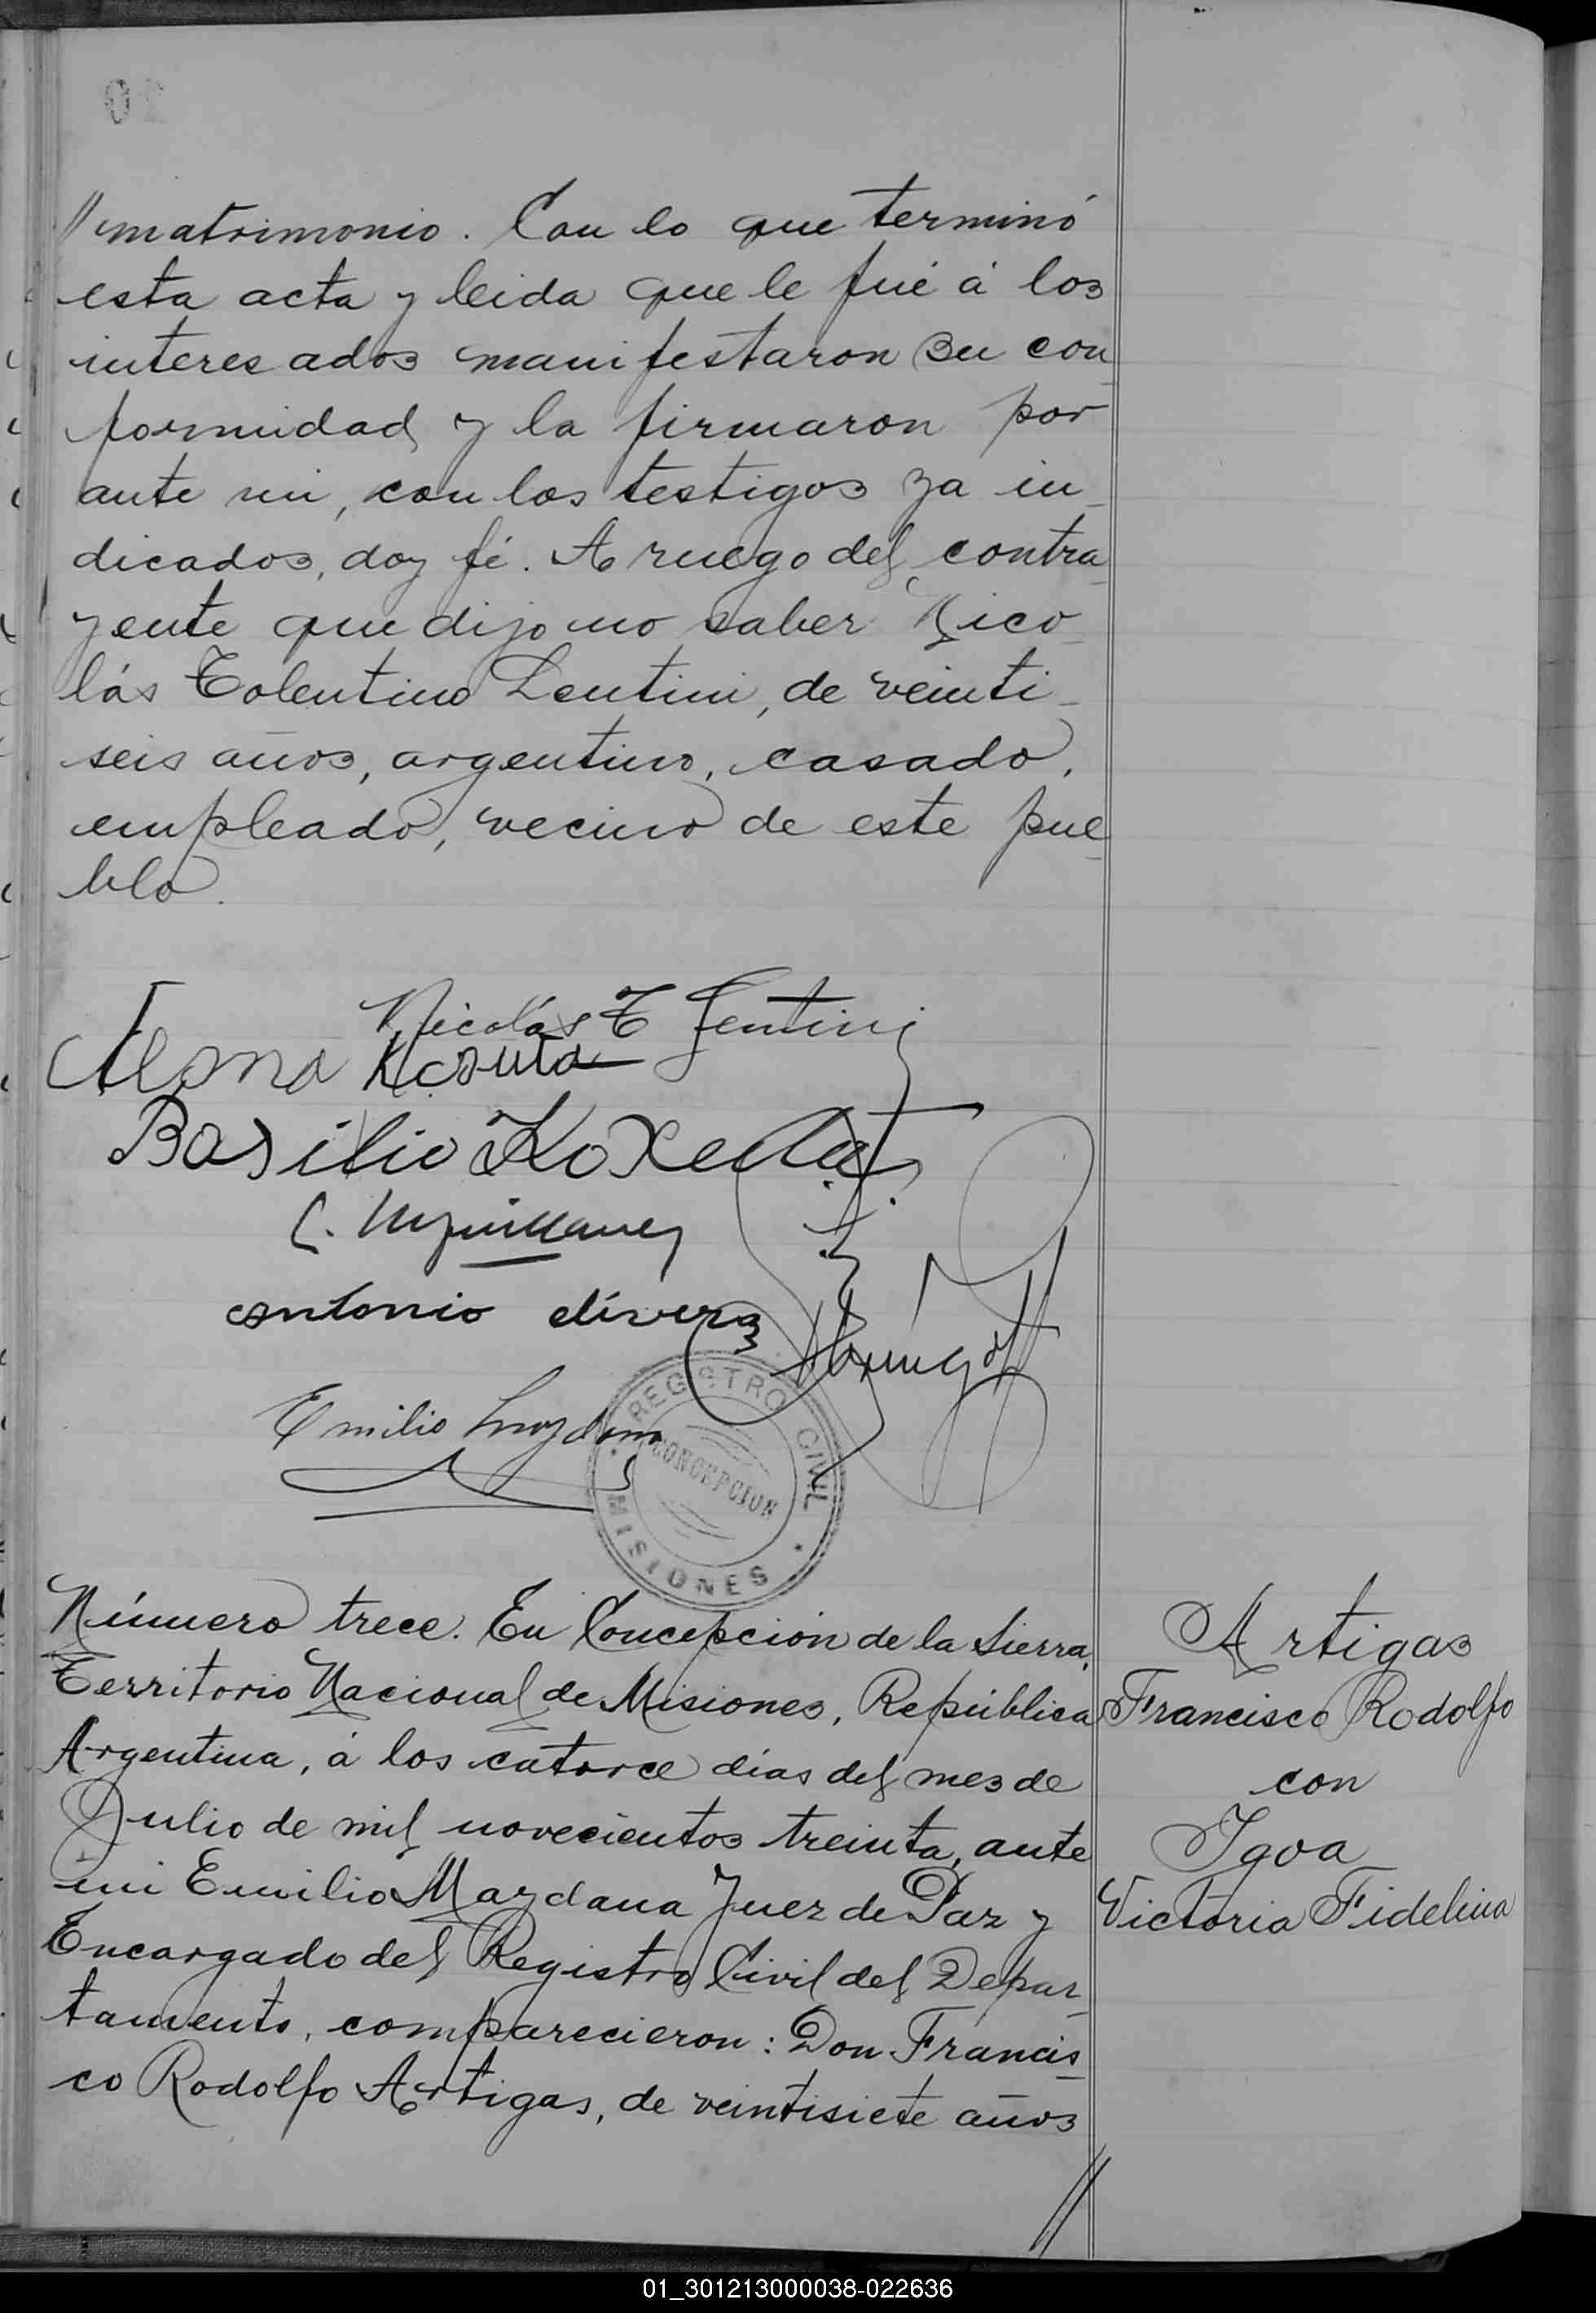 // matrimonio. Con lo que terminó
esta acta y leida que le fué á los
interesados manifestaron su con_
formidad y la firmaron por
ante mi, con los testigos ya in_
dicados, doy fé. A ruego del contra_
yente que dijo no saber Nico_
lás Tolentino Lentini, de veinti_
seis años, argentino, casado,
empleado, vecino de este pue_
blo.
Nicolás T Lentini
Basilio
antonio
Emilio
REGISTRO CIVIL
CONCEPCION
MISIONES
Número trece. En Concepción de la Sierra,
Territorio Nacional de Misiones, República
Argentina, á los catorce días del mes de
Julio de mil novecientos treinta, ante
mi Emilio Mazdana Juez de Paz y
Encargado del Registro Civil del Depar_
tamento, comparecieron: Don Francis_
co Rodolfo Artigas, de veintisiete años
//
Artigas
Francisco Rodolfo
con
Igoa
Victoria Fidelina
01_301213000038-022636